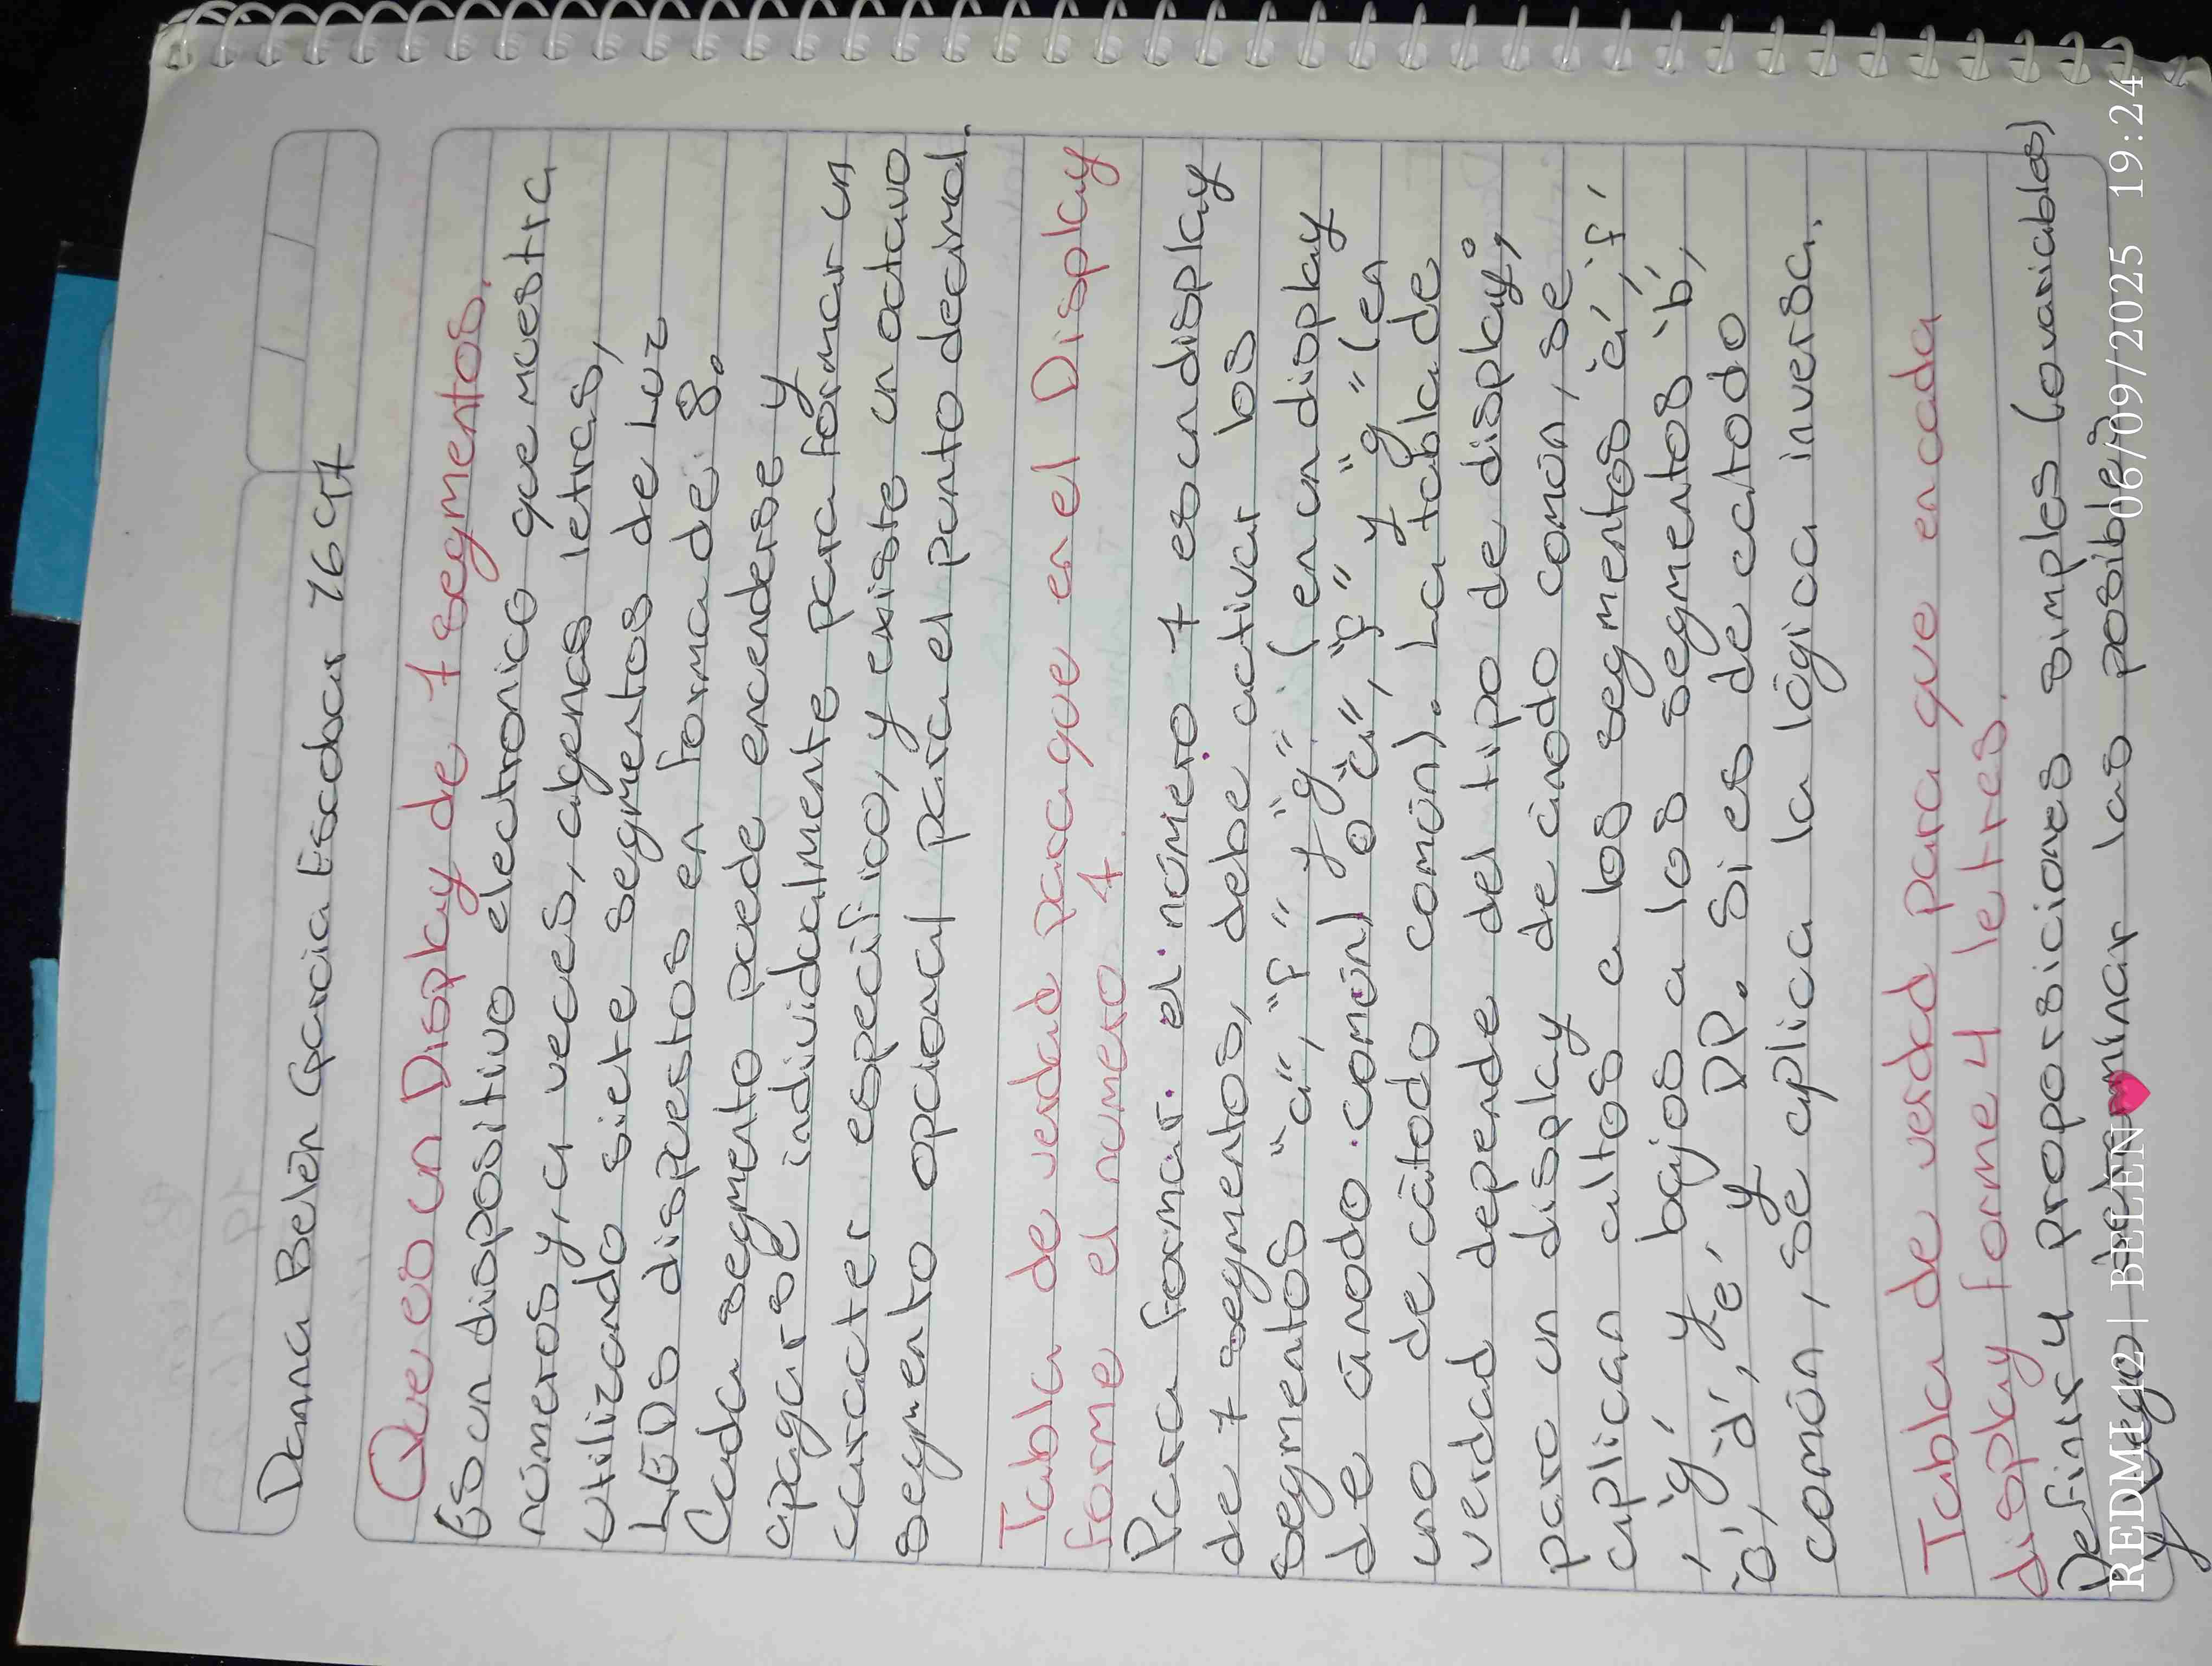 Danna Belén García Escobar 7697
Que es un Display de 7 segmentos.
Es un dispositivo electronico que muestra
números y, a veces, algenas letras,
utilizando siete segmentos de Luz
LEDs dispuestos en forma de 8.
Cada segmento puede encenderse y
apagarse individualmente para formar un
carácter específico, y existe un octavo
segmento opcional para el punto decimal.
Tabla de verdad para que en el Display
forme el numero 7.
Para formar el número 7 es un display
de 7 segmentos, debe activar los
segmentos "a", "f" y "g" (en un display
de ánodo común) o "a", "f" y "g" (en
uno de cátodo común). La tabla de
verdad depende del tipo de display;
para un display de ánodo común, se
aplican altos a los segmentos 'a', 'f'
, 'g', y bajos a los segmentos 'b',
'c', 'd', 'e', y DP. Si es de catodo
común, se aplica la lógica inversa.
Tabla de verdad para que en cada
display forme 4 letres.
Definir 4 proporsiciones simples (ovariables)
y luego minar las posibles
REDMI 12 | BELEN 06/09/2025 19:24